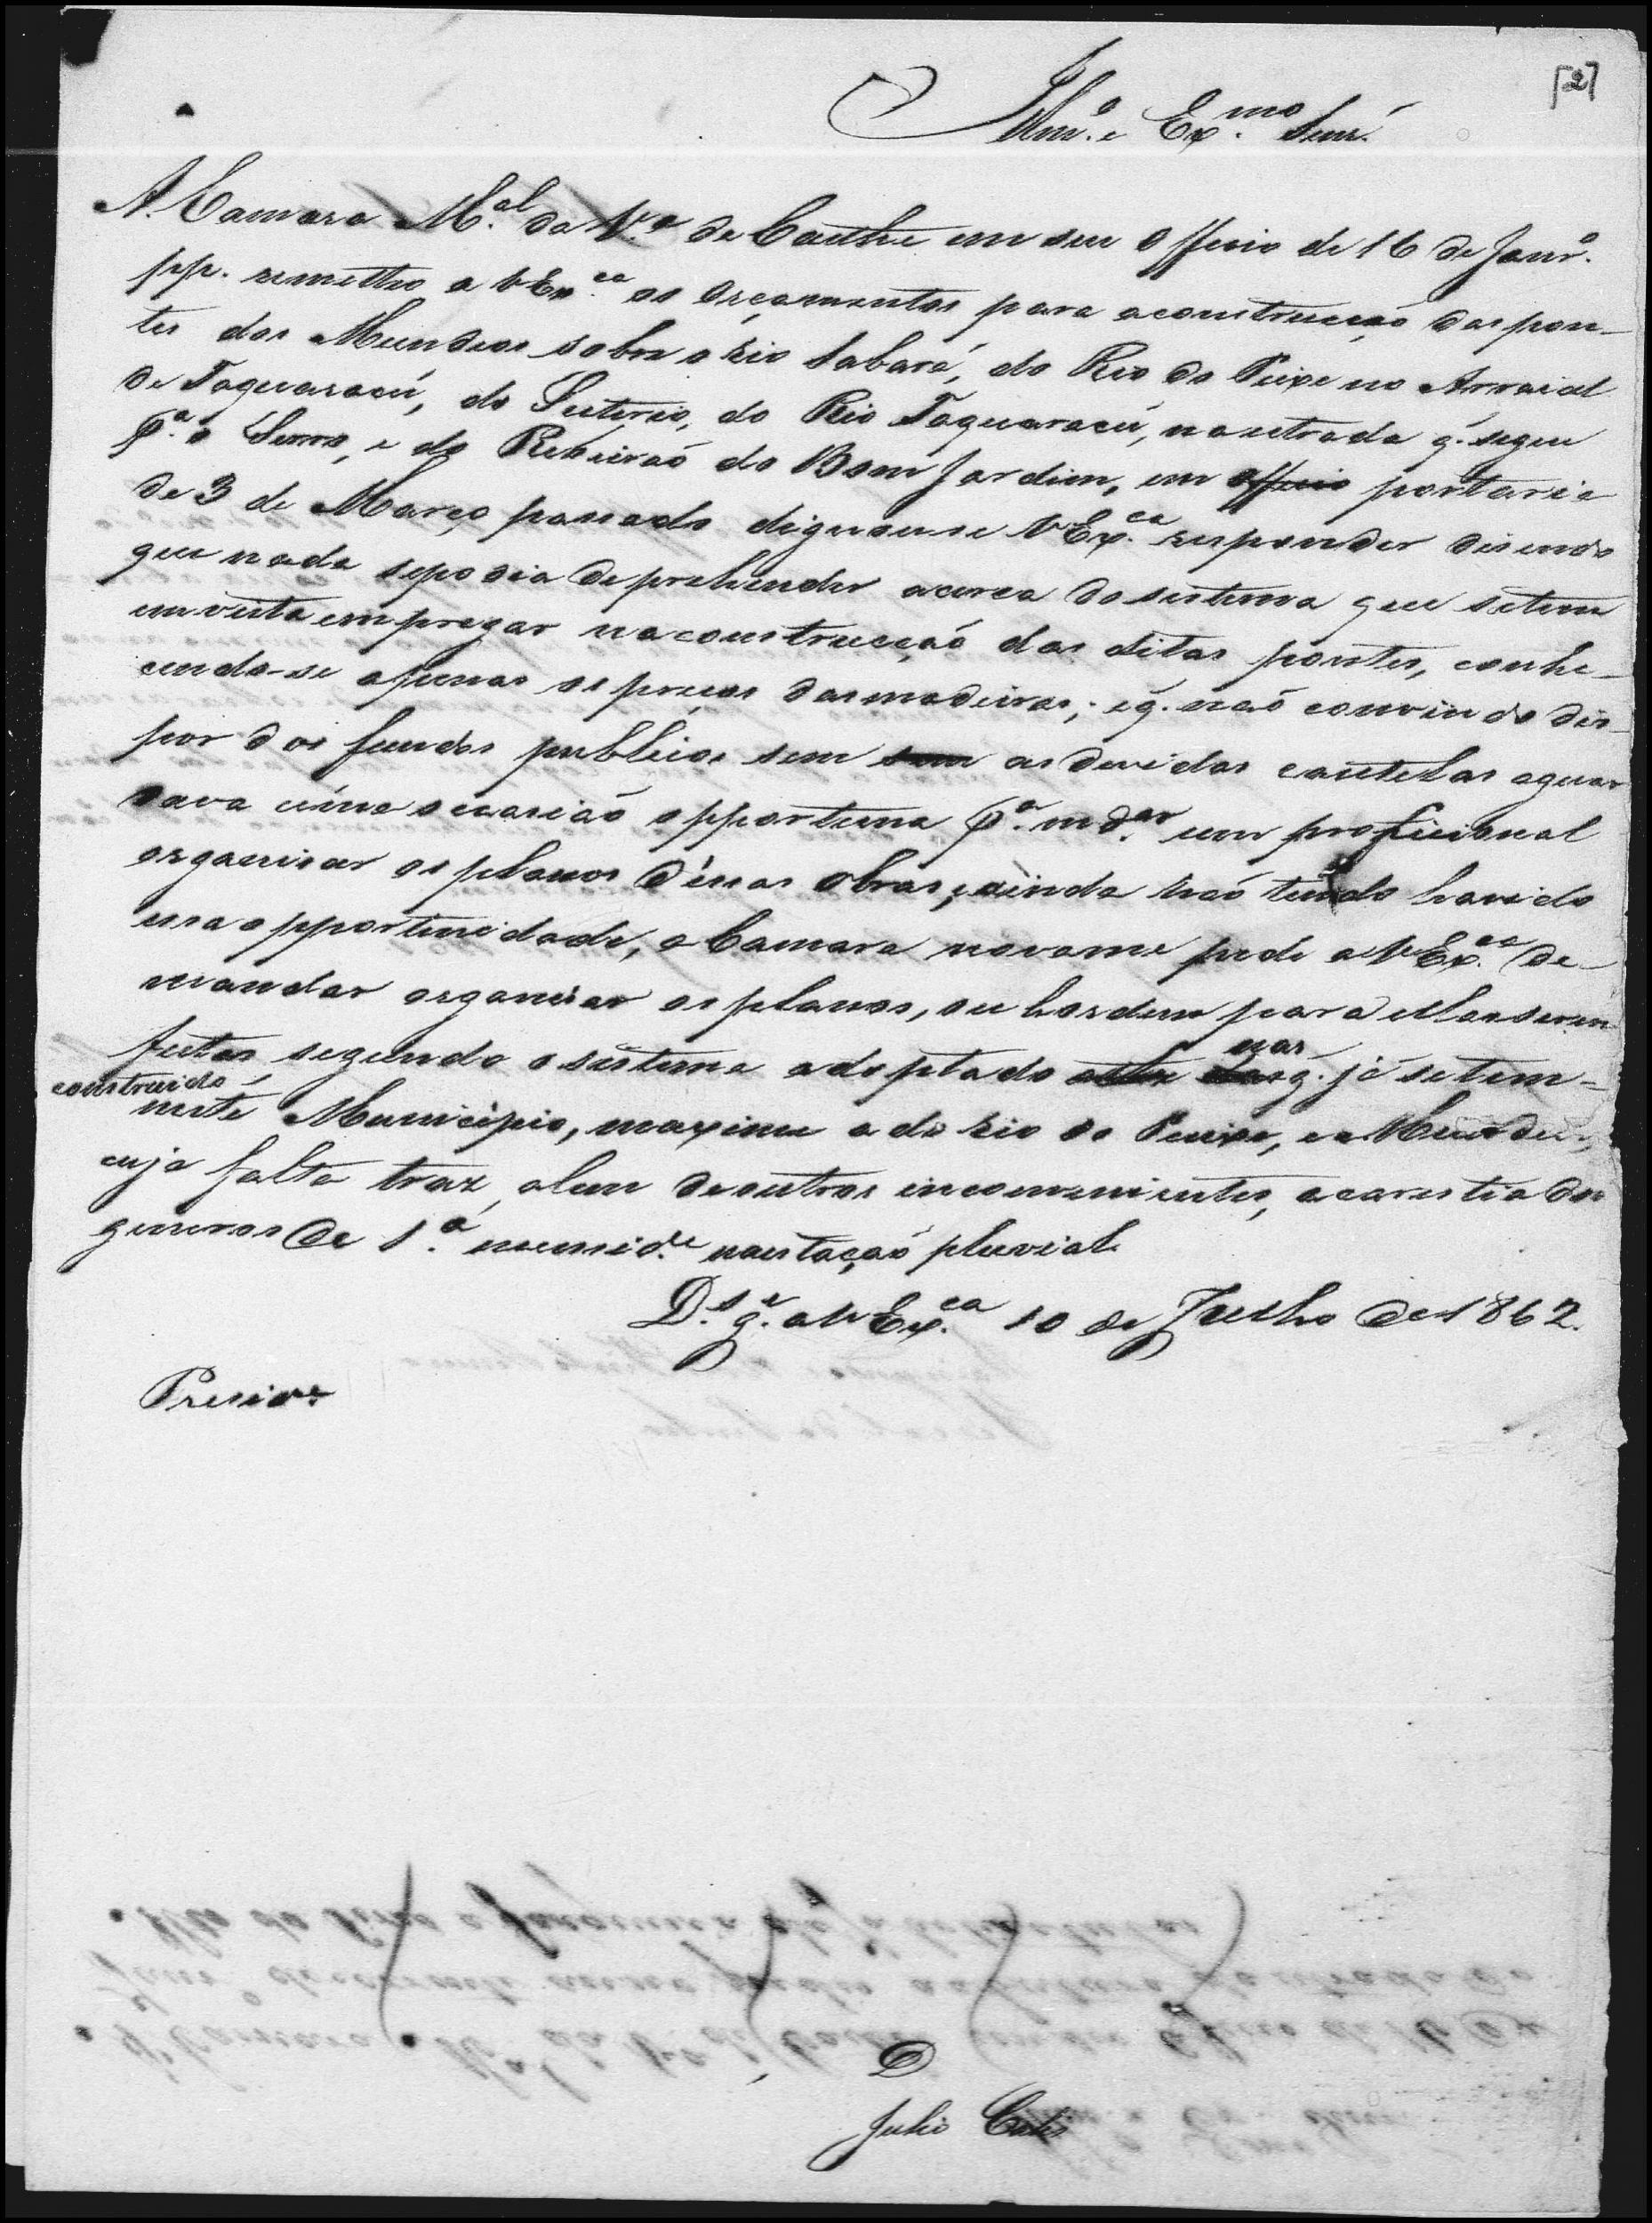 [2]
Illmº. e Exmo. Senr.
A Camara Mal. da Vª de Caethe em seu Officio de 16 de Janrº.
pp. remetteo a VExca os Orçamentos para aconstrucçaõ das pon-
tes dos Mundeos sobre o rio Sabará, do Rio do Peixe no Arraial
de Taquarassú, do Suterio, do Rio Taquaracú, na estrada q. segue
Pª. o Serro, e do Ribeiraõ do Bom Jardim, em officio portaria
de 3 de Março passado dignouse VExca. responder disendo
que nada sepodia deprehender acerca do sistema que setem
emvista empregar na construcçaõ das ditas pontes, conhe-
cendo-se apenas os preços das madeiras; e q. naõ convindo dis-
por dos fundos publicos sem sem as devidas cautelas aguar
dava uma ocasiaõ opportuna Pª. mdar um proficional
organisar os planos d'essas obras, e ainda naõ tendo havido
essa opportunidade, a Camara novame pede a VExca. de
mandar organisar os planos, ou hordem para ellas serem
feitas segundo o sistema adoptado nas q. já se tem-
construido
neste Municipio, maxime a do rio do Peixe, e a Mundeos,
cuja falta traz, alem de outros inconvenientes, a carestia dos
generos de 1.ª necessid.e na estaçaõ pluvial.
Ds. ge. a VExca. 10 de Julho de 1862.
Preside.
D
Julio